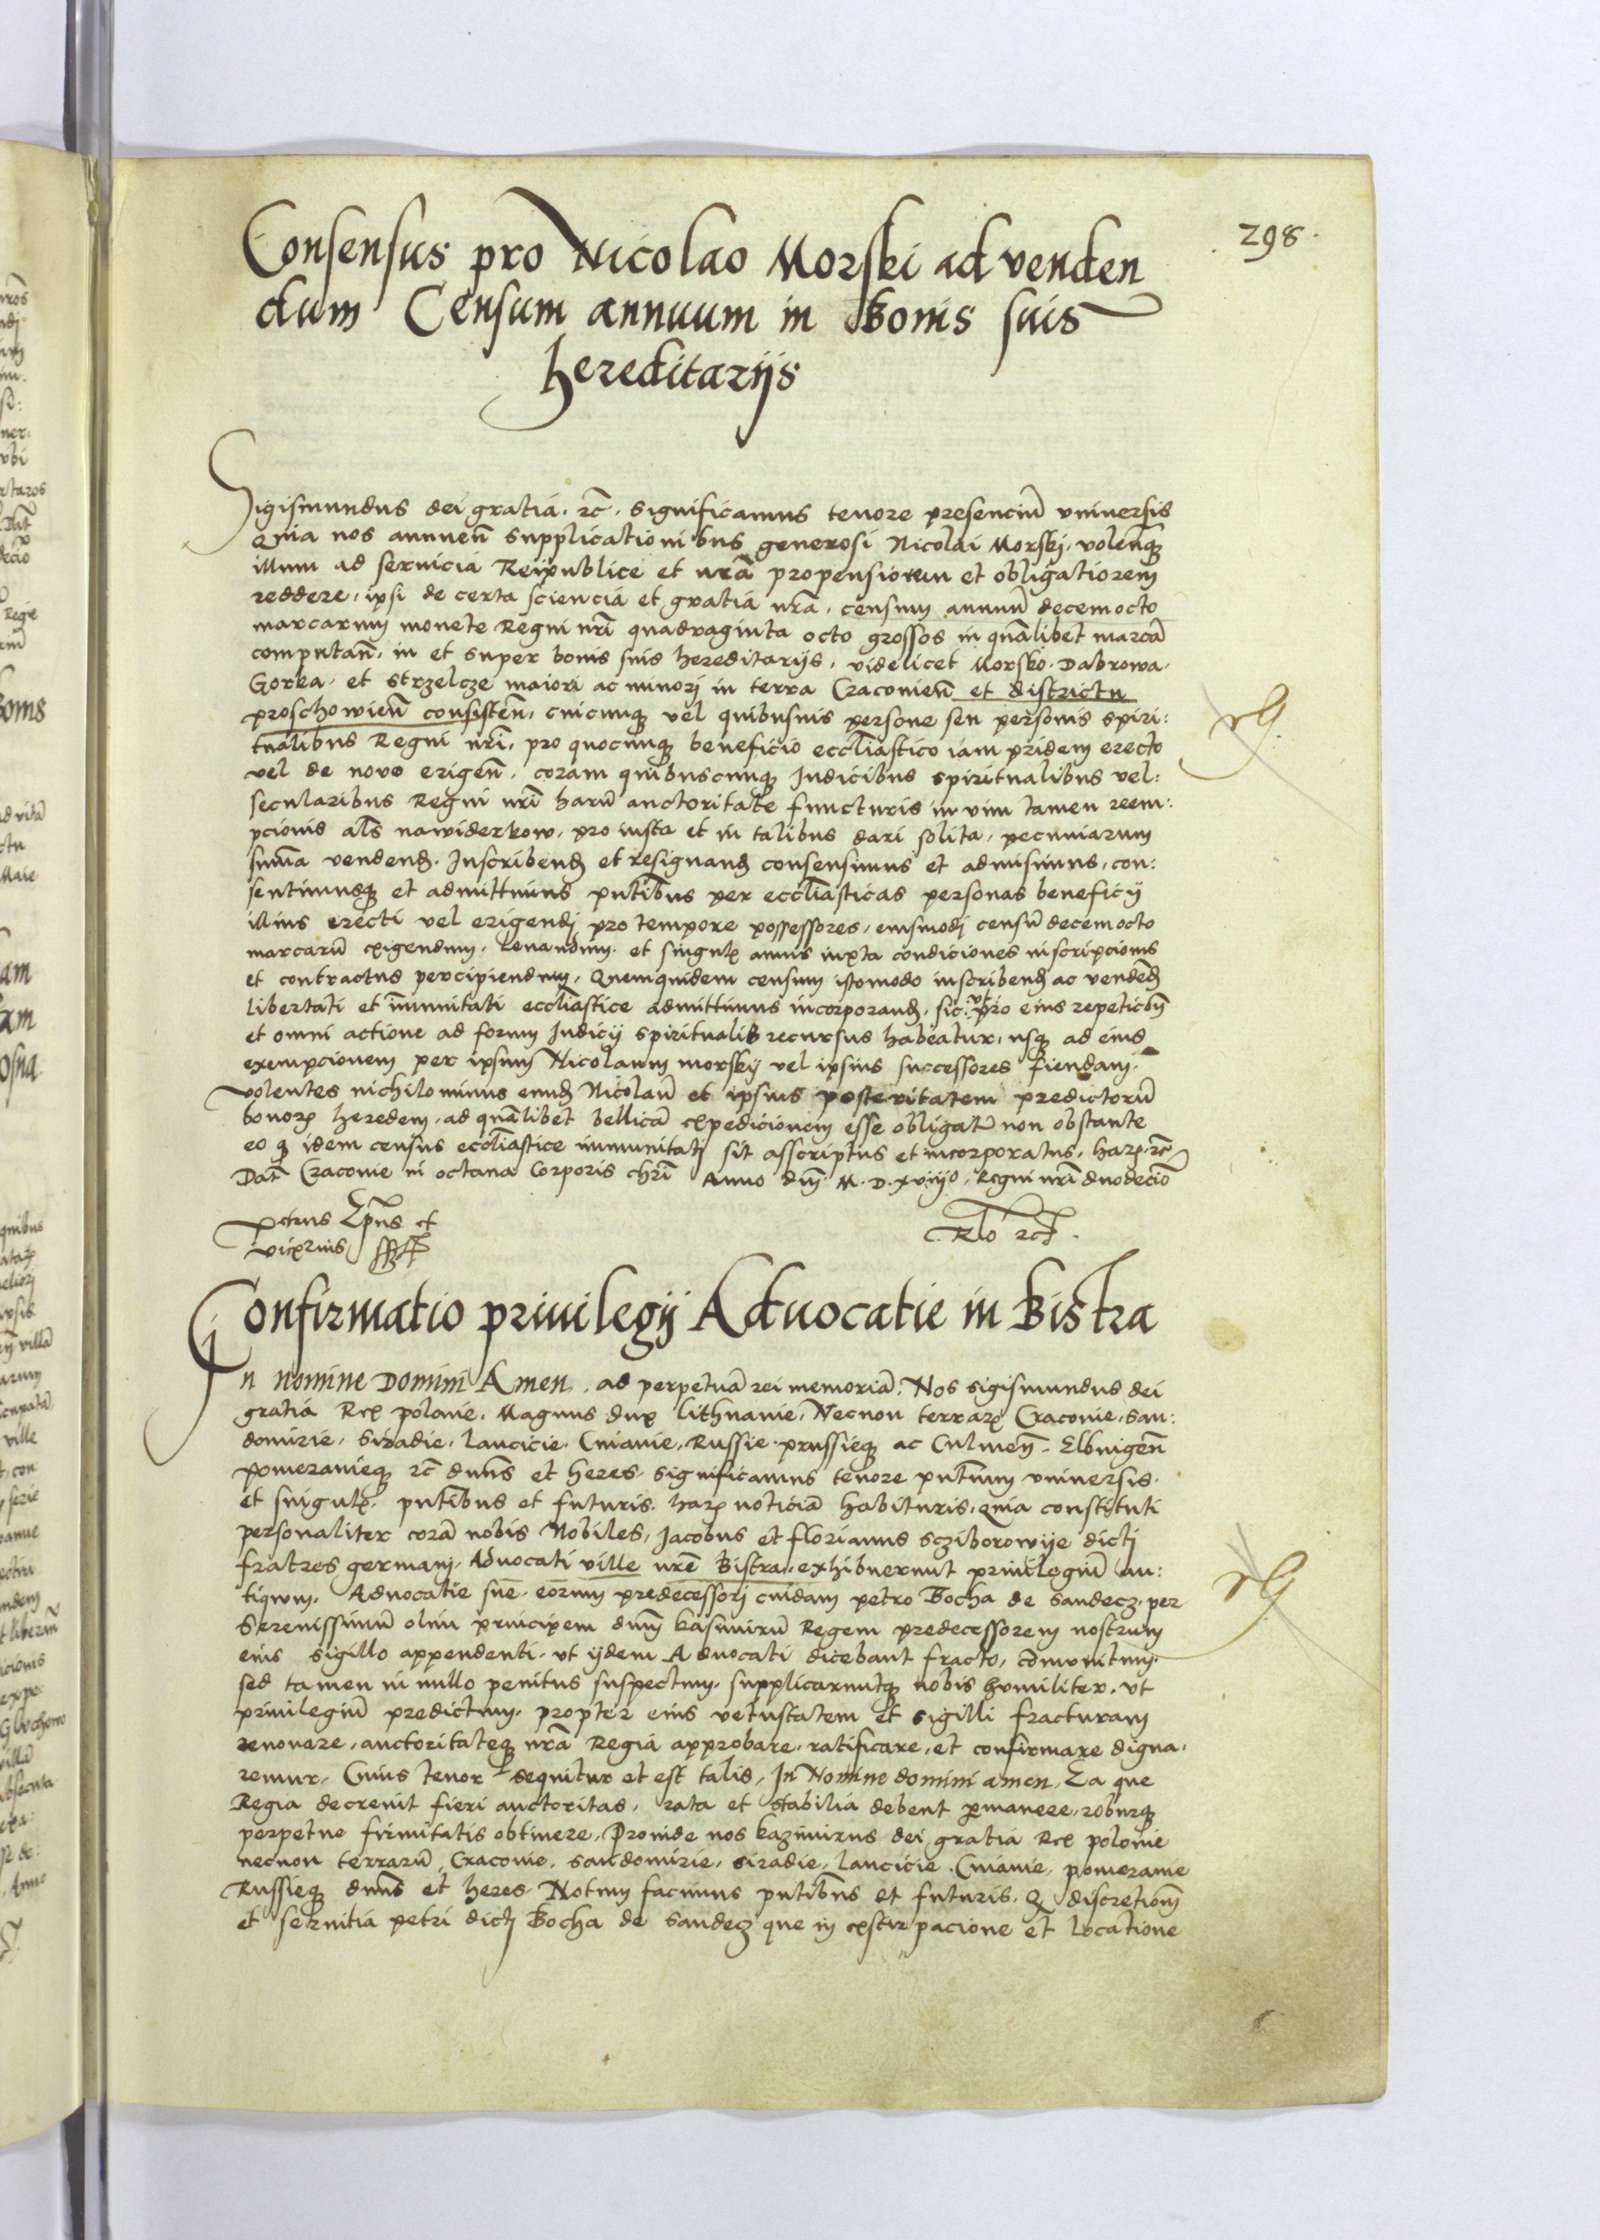 298.
Consensus pro Nicolao Morski ad venden
dum Censum annuum in Bonis suis
hereditariis
Sigismundus dei gratia. rc̄. significamus tenore presenciū vniversis
Quia nos annuen̄ supplicationibus generosi Nicolai Morskj. volen̄qꝫ
illum ad seruicia Reipublice et nrā propensiorem et obligatiorem
reddere, ipsi de certa sciencia et gratia nrā, censum annuū decemocto
marcarum monete Regni nrī quadraginta octo grossos in quālibet marcā
computan̄, in et super bonis suis hereditarijs, videlicet Morsko. Dabrowa.
Gorka. et strzelcze maiori ac minorj in terra Cracovien̄ et districtu
proschowien̄ consisten̄, cuicunqꝫ vel quibusuis persone seu personis spiri:
tualibus Regni nrī, pro quocunqꝫ beneficio eccliāstico iam pridem erecto
vel de novo erigen̄, coram quibuscunqꝫ Iudicibus spiritualibus vel:
secularibus Regni nrī harū auctoritate functuris in vim tamen reem:
pcionis als̄ nawiderkow, pro iusta et in talibus dari solita, pecuniarum
sum̄a vendenḍ. Inscribenḍ et resignanḍ consensimus et admisimus, con:
sentimusqꝫ et admittimus pn̄tibus per eccliāsticas personas beneficij
illius erecti vel erigendj pro tempore possessores, eiusmodj censū decemocto
marcarū exigendum, leuandum. et singulꝭ annis iuxta condiciones inscripcionis
et contractus percipiendum, Quemquidem censum istomodo inscribenḍ ac vendenḍ
libertati et im̄unitati eccliāstice admittimus incorporanḍ, sic: vt pro eius repetic̄oē
et omni actione ad forum Iudicij spiritualis recursus habeatur, usqꝫ ad eius
exempcionem per ipsum Nicolaum morskij vel ipsius successores fiendam,
volentes nichilominus eunḍ Nicolaū et ipsius posteritatem predictorū
bonorꝝ heredem, ad quālibet bellicā expedicionem esse obligatū non obstante
eo ꝙ idem census eccliāstice immunitatj sit asscriptus et incorporatus, harꝝ. rc̄
Dat̄ Cracovie in octaua Corporis chrī Anno dn̄j M. D. xviijo, Regni nrī duodecīo
Petrus Ep̄us et
vicꝫrius sst
Rlo rct.
Confirmatio priuilegij Aduocatie in Bistra
In nomine Domini Amen. ad perpetuā rei memoriā, Nos sigismundus dei
gratia Rex polonie, Magnus dux lithuanie, Necnon terrarꝝ Cracovie, san:
domirie. Siradie, lancicie. Cuiauie, Russie. prussieqꝫ ac Culmen̄. Elbingen̄
pomeranieqꝫ rc̄ dnn̄s et heres. significamus tenore pn̄tium vniversis.
et singulꝭ. pn̄tibus et futuris. harꝝ noticiā habituris, quia constituti
personaliter corā nobis Nobiles, Jacobus et florianus scziborowije dictj
fratres germanj, Advocati ville nrē Bistra, exhibuerunt priuilegiū an:
tiquum, Advocatie sue. eorum predecessorj cuidam petro Bocha de Sandecz. per
Serenissimū olim principem dnm̄ kasimirū Regem predecessorem nostrum
eius sigillo appendenti, vt ijdem Advocati dicebant fracto, com̄unitum,
sed tamen in nullo penitus suspectum, supplicaruntqꝫ nobis humiliter, vt
priuilegiū predictum, propter eius vetustatem et sigilli fracturam
renouare, auctoritateqꝫ nrā Regia approbare, ratificare, et confirmare digna,
remur, Cuius tenor sequitur et est talis, In Nomine domini amen. Ea que
Regia decreuit fieri auctoritas, rata et stabilia debent p̱manere, roburqꝫ
perpetue firmitatis obtinere, Proinde nos kazimirus dei gratia Rex polonie
necnon terrarū Cracovie, sandomirie, siradie, lancicie. Cuiauie, pomeranie
Russieqꝫ dnn̄s et heres. Notum facimus pn̄tibus et futuris. ꝙ discretionē
et seruitia petri dictj Bocha de Sandecz que in exstirpacione et locatione